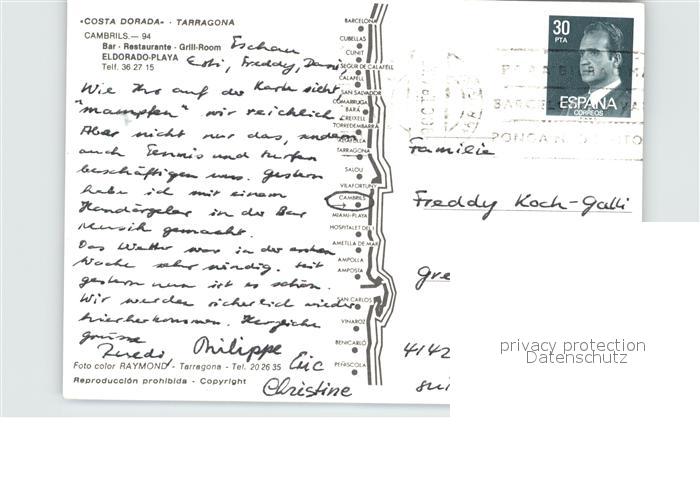 «COSTA DORADA» · TARRAGONA
CAMBRILS.— 94
Bar · Restaurante · Grill-Room
ELDORADO-PLAYA
Telf. 36 27 15
Esti, Freddy, Dani,
Wie Ihr auf der Karte sieht
"mampfen" wir reichlich.
Aber nicht nur das, sondern
auch Tennis und Surfen
beschäftigen uns. Gestern
habe ich mit einem
Handörgeler in der Bar
Musik gemacht.
Das Wetter war in der ersten
Woche sehr windig. Seit
gestern nun ist es schön.
Wir werden sicherlich wieder
hierherkommen. Herzliche
grüsse
Ruedi, Philippe
Eric
Christine
Foto color RAYMOND - Tarragona - Tel. 20 26 35
Reproducción prohibida - Copyright
BARCELONA
CUBELLAS
CUNIT
SEGUR DE CALAFELL
CALAFELL
SAN SALVADOR
COMARRUGA
BARÁ
CREIXELL
TORREDEMBARRA
ALTAFULLA
TARRAGONA
SALOU
VILAFORTUNY
CAMBRILS
MIAMI-PLAYA
HOSPITALET DEL I.
AMETLLA DE MAR
AMPOLLA
AMPOSTA
SAN CARLOS
VINAROZ
BENICARLÓ
PEÑISCOLA
30
PTA
ESPAÑA
CORREOS
BARCEL
PONGA
Familie
Freddy Koch-Galli
Gre
4142
privacy protection
Datenschutz